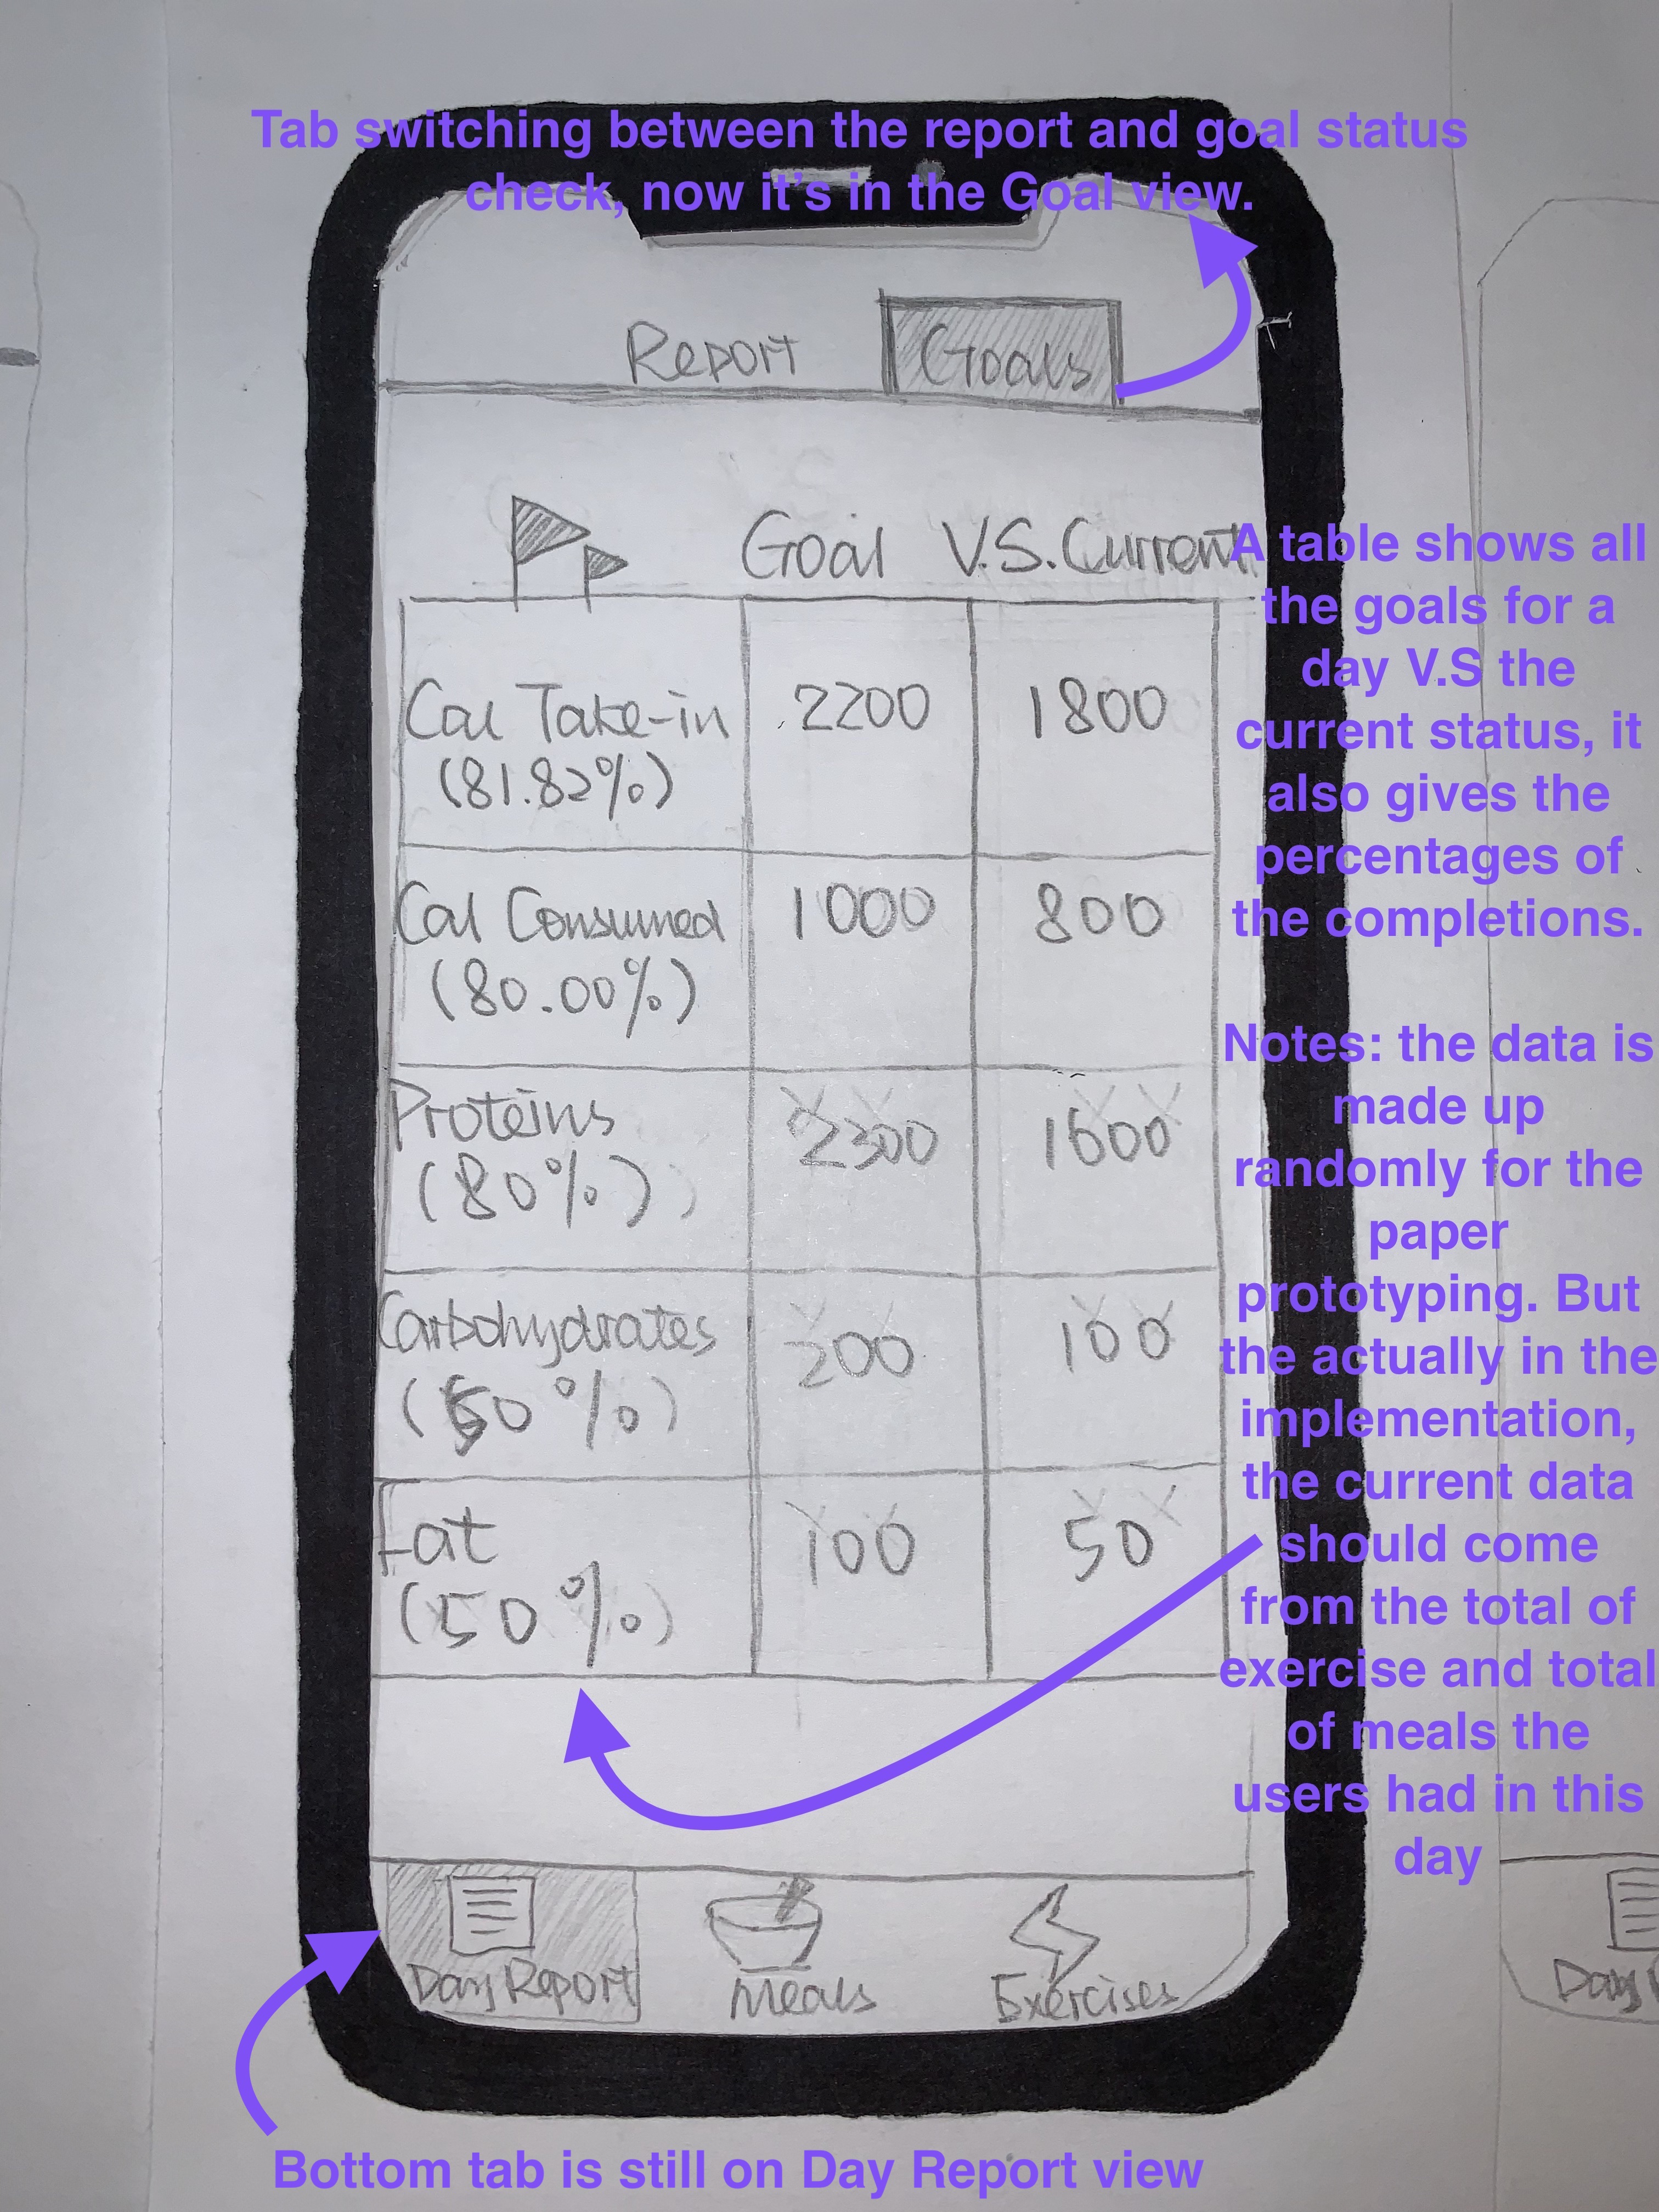 Tab switching between the report and goal status
check, now it's in the Goal view.
Report Goals
Goal V.S. Current
A table shows all
the goals for a
day V.S the
current status, it
also gives the
percentages of
the completions.
Cal Take-in 2200 1800
(81.82%)
Cal Consumed 1000 800
(80.00%)
Proteins
(80%)
Carbohydrates 200 100
(50%)
Fat 100 50
(50%)
Notes: the data is
made up
randomly for the
paper
prototyping. But
the actually in the
implementation,
the current data
should come
from the total of
exercise and total
of meals the
users had in this
day
Day Report Meals Exercises
Day
Bottom tab is still on Day Report view